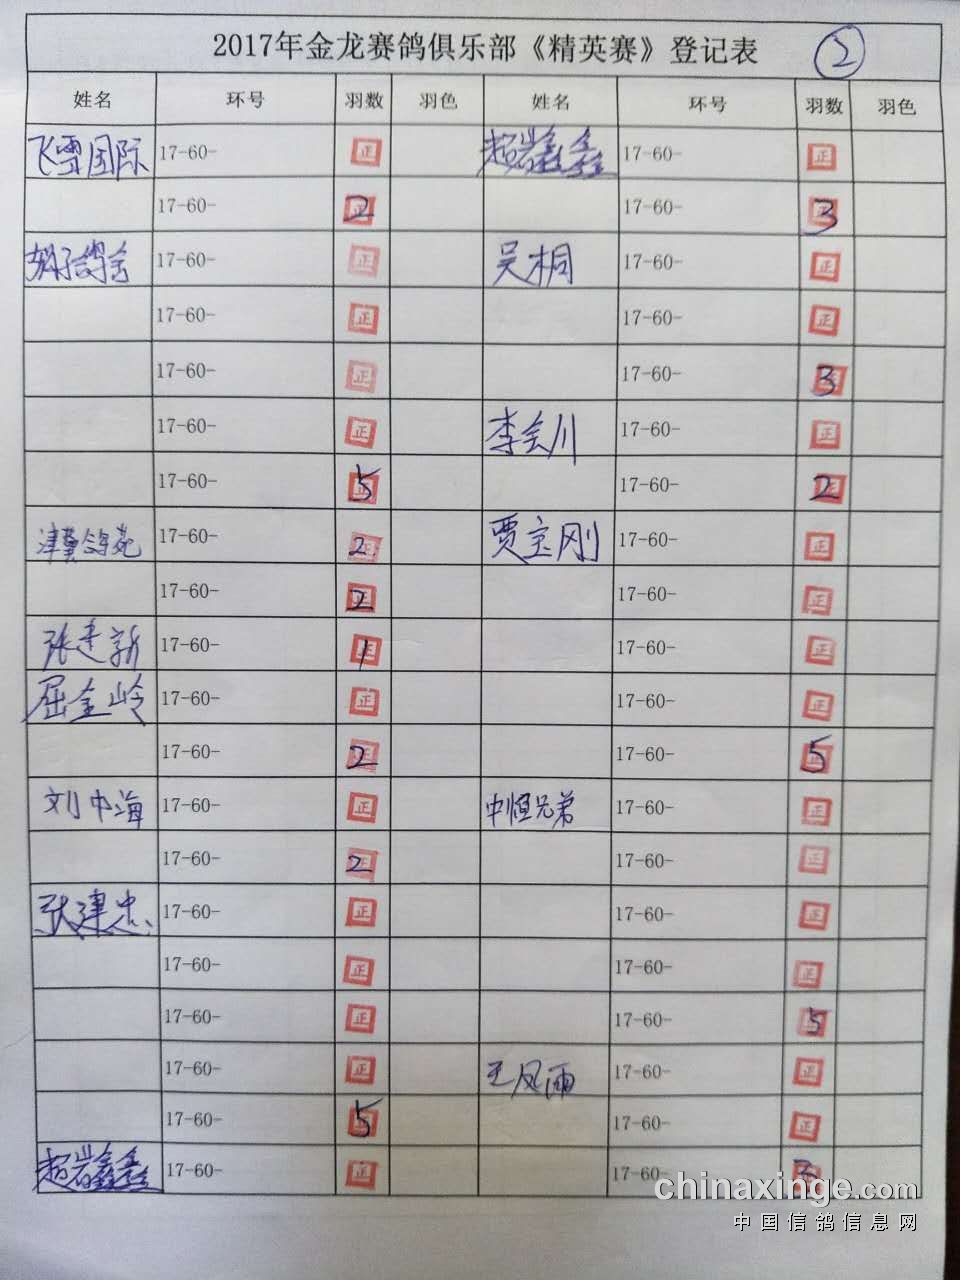 2017年金龙赛鸽俱乐部《精英赛》登记表 2
姓名 环号 羽数 羽色 姓名 环号 羽数 羽色
飞雪国际 17-60- 正 超岩鑫鑫 17-60- 正
17-60- 2 17-60- 3
胡子鸽舍 17-60- 正 吴桐 17-60- 正
17-60- 正 17-60- 正
17-60- 正 17-60- 3
17-60- 正 李会川 17-60- 正
17-60- 5 17-60- 2
津冀鸽苑 17-60- 2 贾宝刚 17-60- 正
17-60- 2 17-60- 正
张建新 17-60- 1 17-60- 正
屈金岭 17-60- 正 17-60- 正
17-60- 2 17-60- 5
刘中海 17-60- 正 中恒兄弟 17-60- 正
17-60- 2 17-60- 正
张建忠 17-60- 正 17-60- 正
17-60- 正 17-60- 正
17-60- 正 17-60- 5
17-60- 正 王风雨 17-60- 正
17-60- 5 17-60- 正
超岩鑫鑫 17-60- 正 17-60- 3
chinaxinge.com
中国信鸽信息网